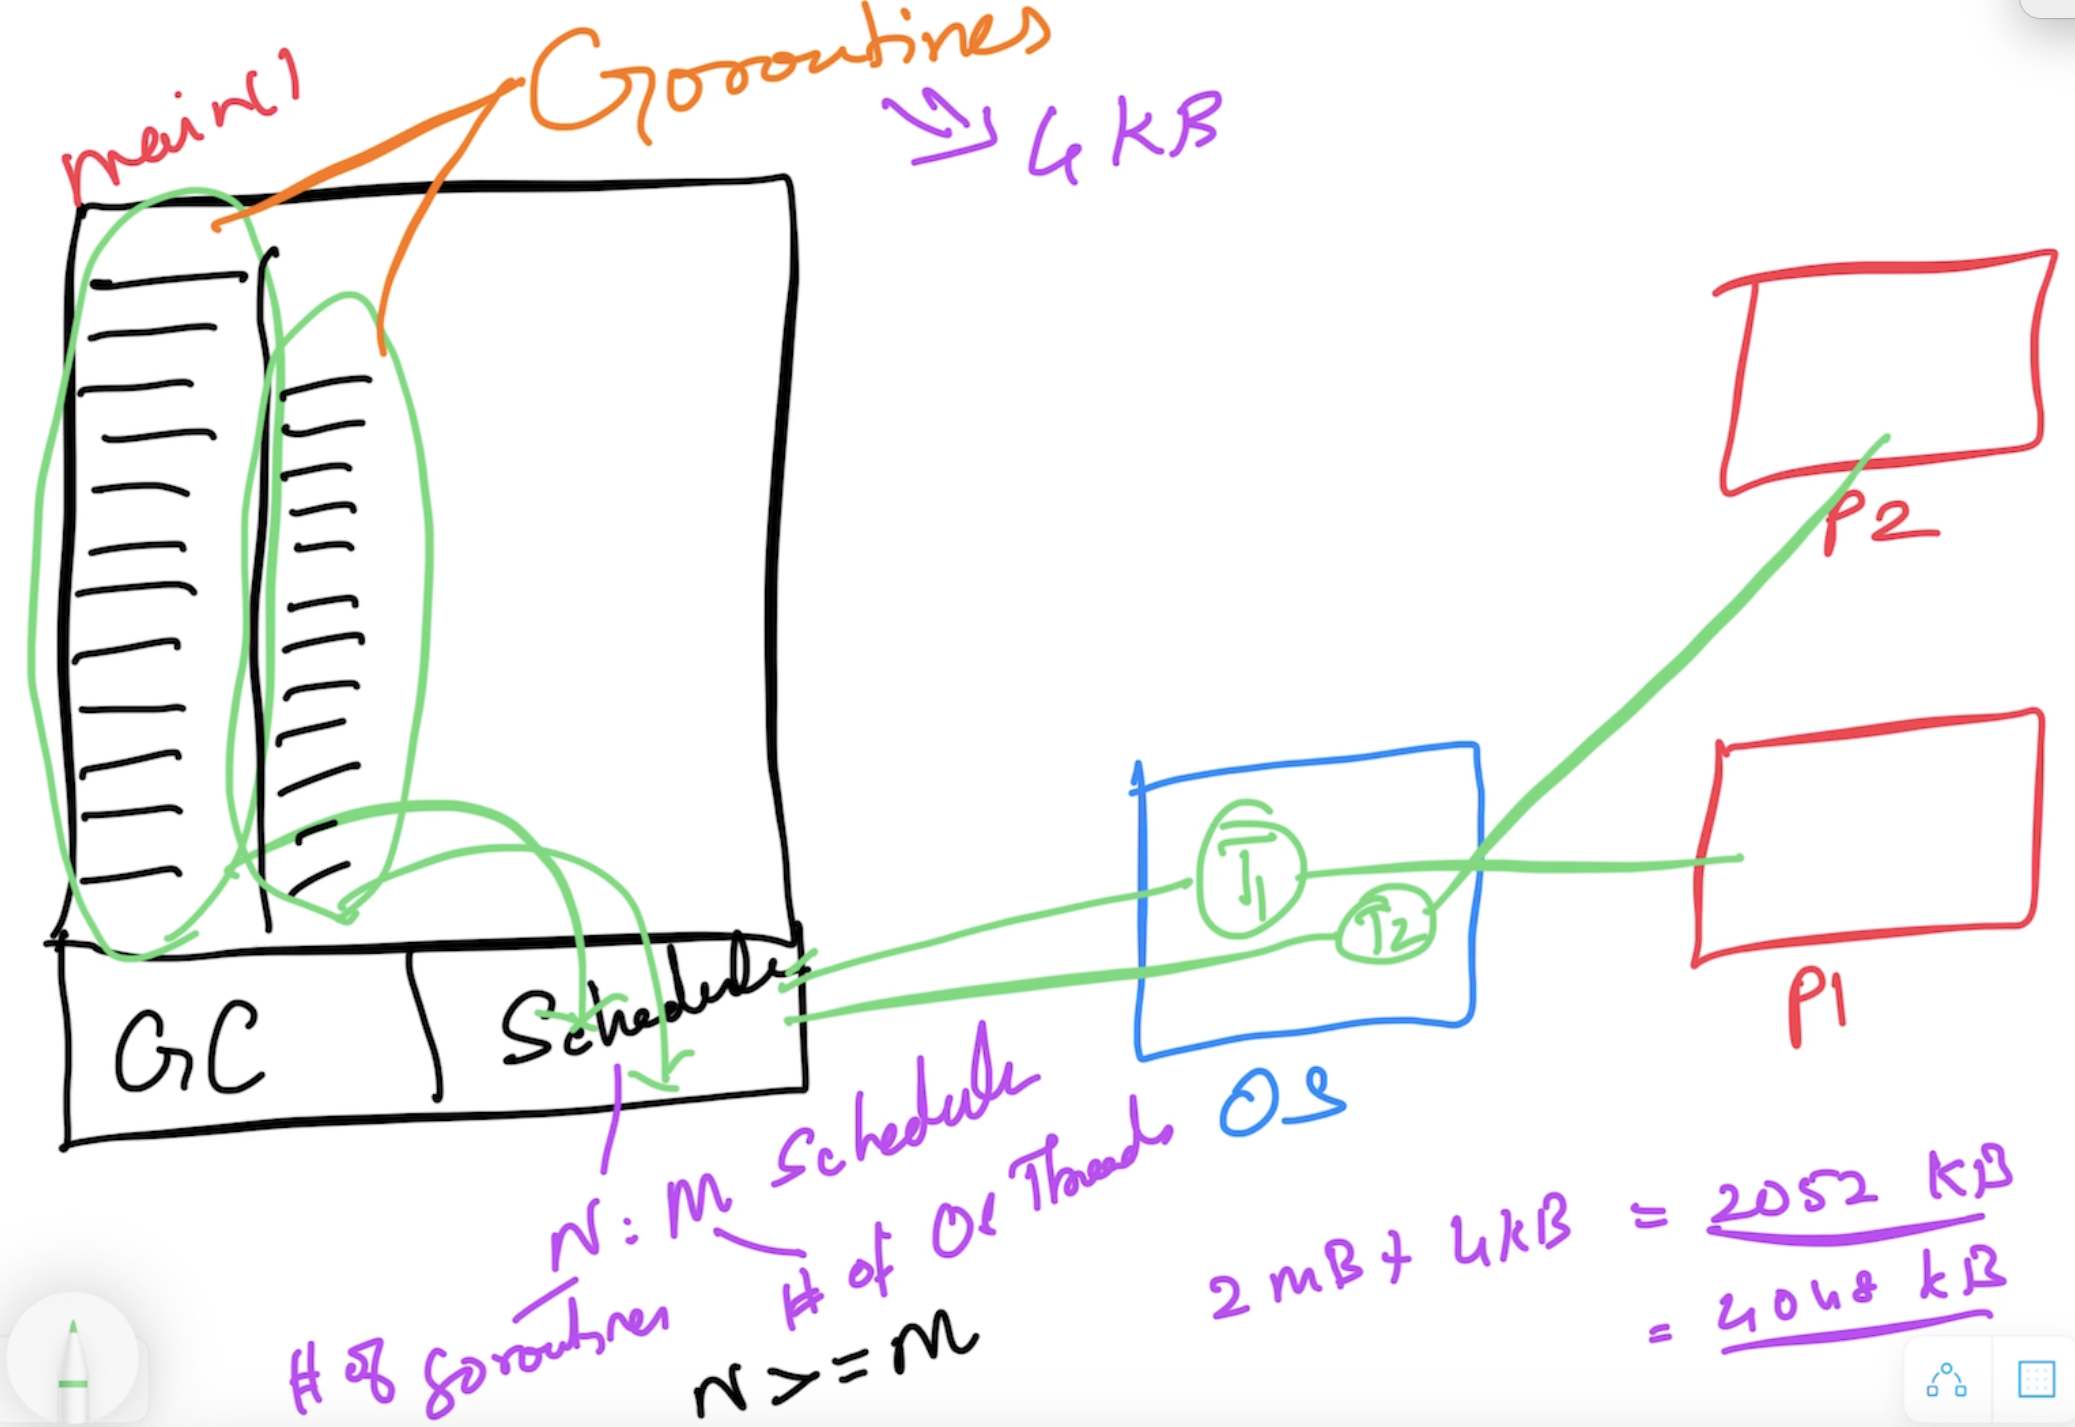 main()
Goroutines
4 KB
P2
T1
T2
P1
GC
Scheduler
OS
N : M Scheduler
# of goroutines
# of OS Threads
N >= M
2 MB + 4KB = 2052 KB
= 4048 KB